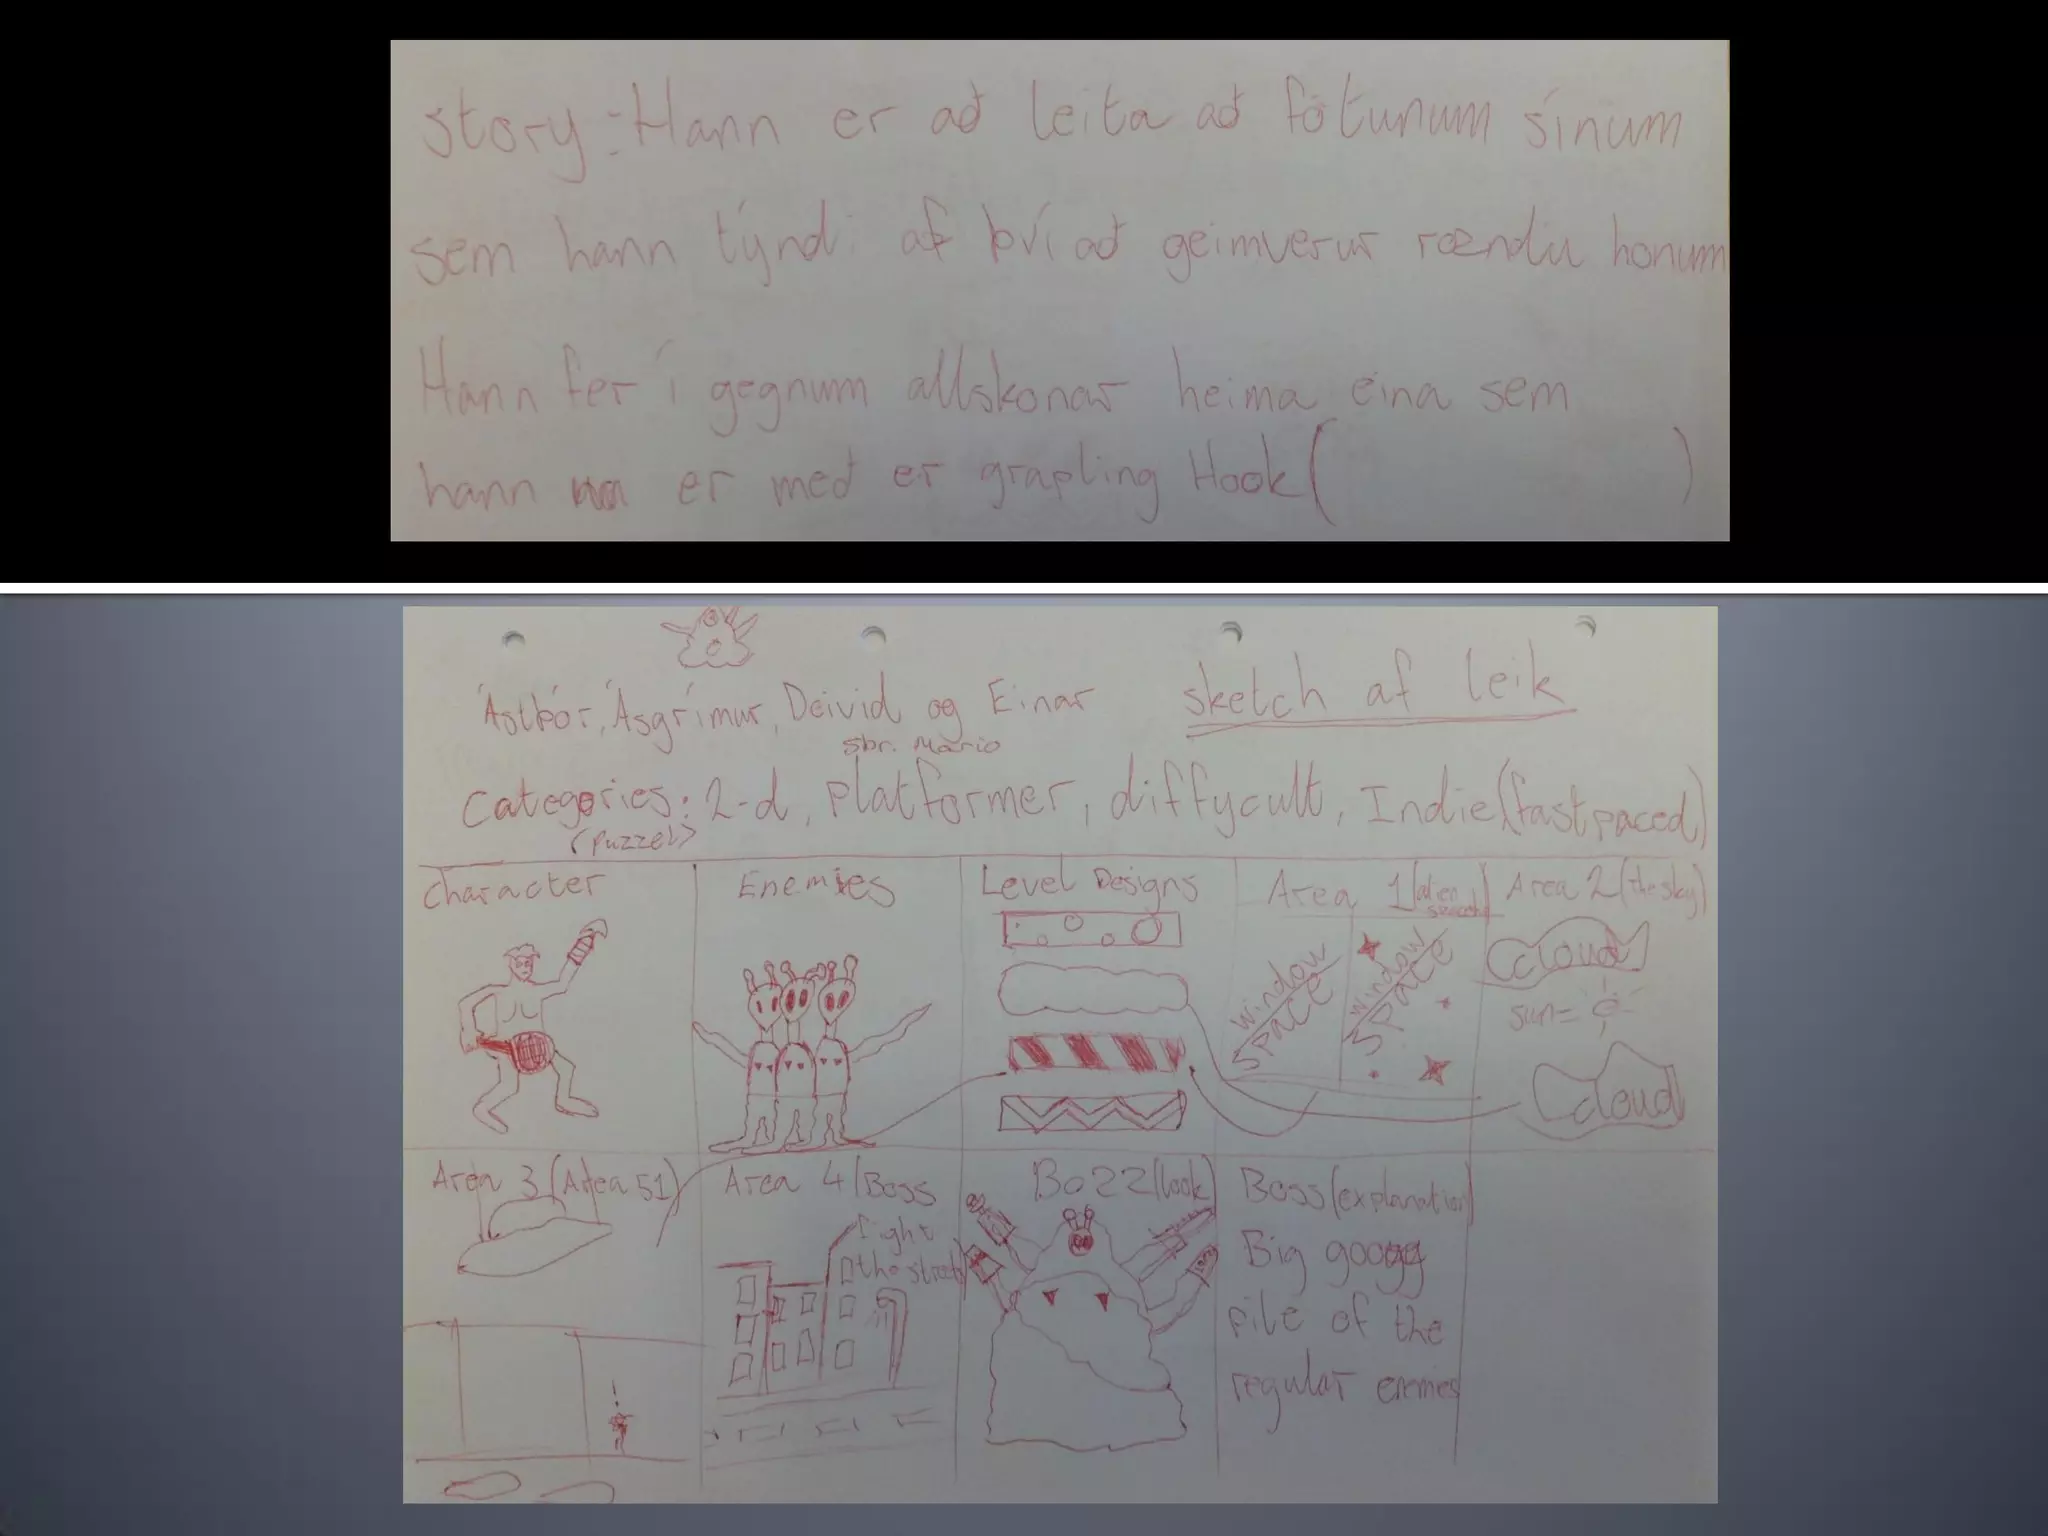 story: Hann er að leita að fötunum sínum
sem hann týndi af því að geimverur rændu honum
Hann fer í gegnum allskonar heima eina sem
hann er með er grapling Hook( )
Ástþór, Ásgrímur, Deivid og Einar
sketch af leik
sbr. Mario
Categories: 2-d, platformer, diffycult, Indie(fastpaced)
(puzzel)
Character
Enemies
Level Designs
Area 1(alien
Area 2(the sky)
window
space
window
space
cloud
sun=
cloud
Area 3(Area 51)
Area 4(Boss
fight
the street)
Bozz(look)
Boss(explanation)
Big googg
pile of the
regular enemies